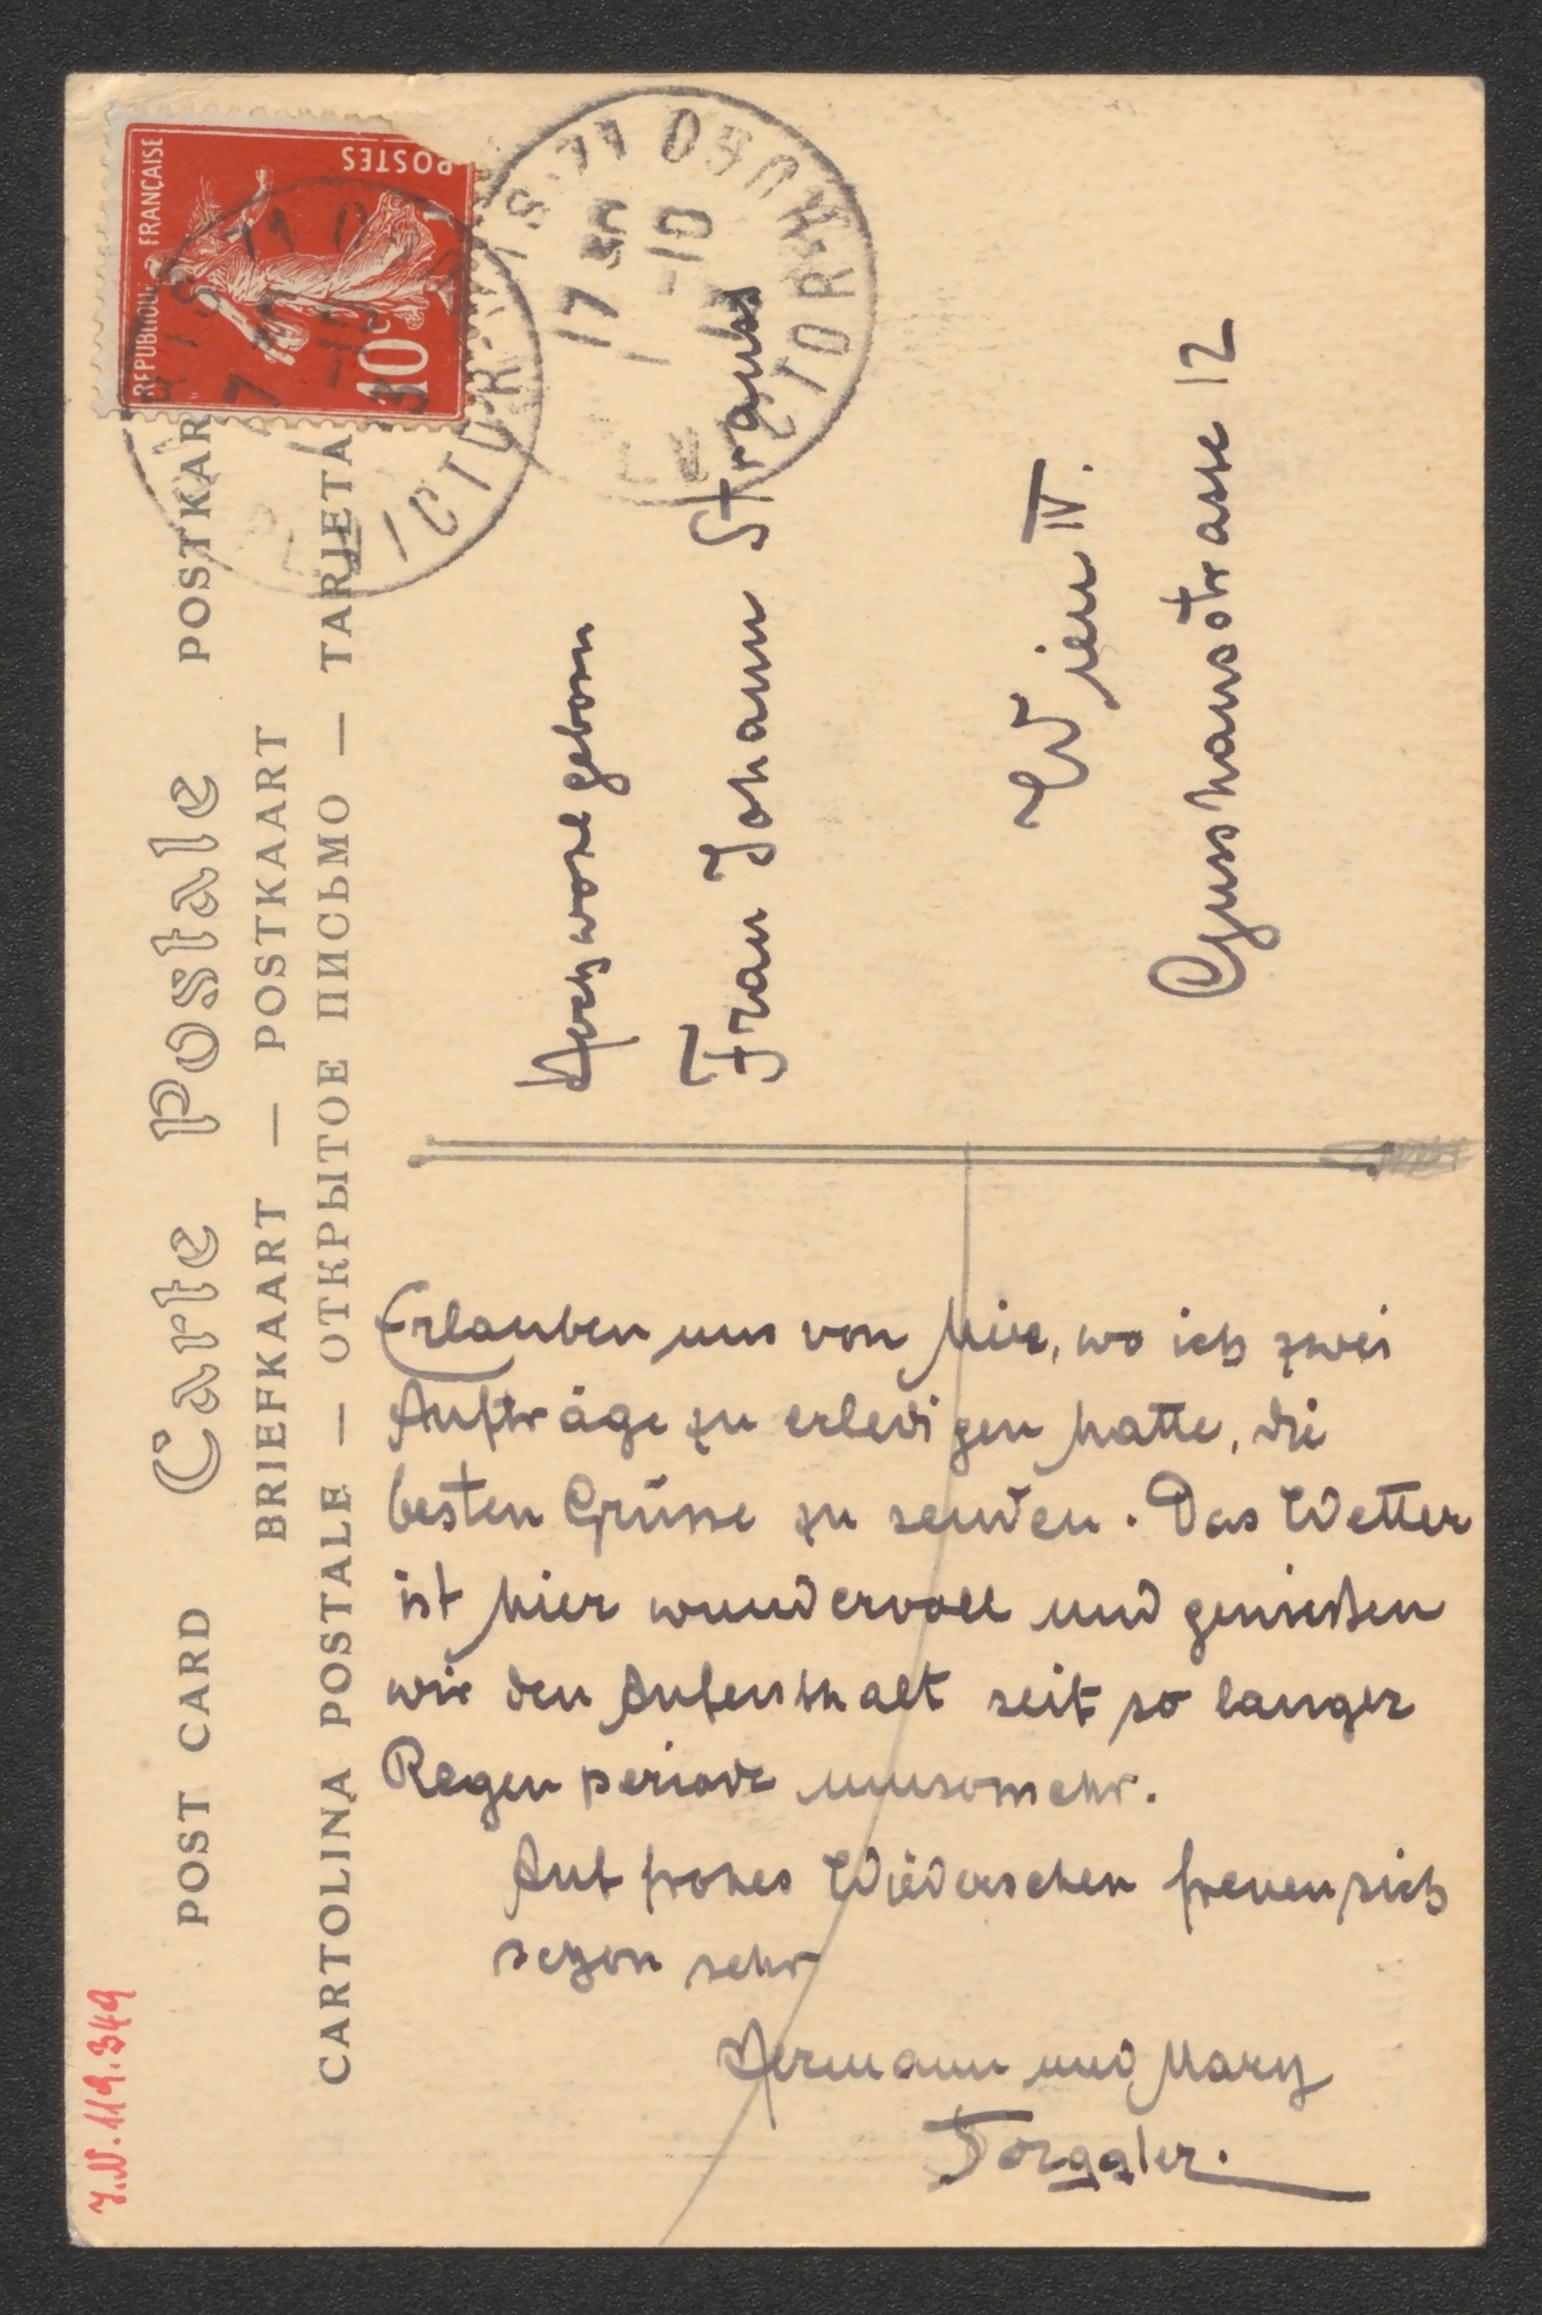 Carte Postale
POST CARD
POSTKAR
BRIEFKAART — POSTKAART
CARTOLINA POSTALE — ОТКРЫТОЕ ПИСЬМО — TARJETA
REPUBLIQUE FRANÇAISE
POSTES
10c
17
-10
Hochwohlgeborn
Frau Johann Strauss
Wien IV.
Gusshausstrasse 12
Erlauben uns von hier, wo ich zwei
Aufträge zu erledigen hatte, die
besten Grüsse zu senden. Das Wetter
ist hier wundervoll und genießen
wir den Aufenthalt seit so langer
Regenperiode umsomehr.
Auf frohes Wiedersehen freuen sich
schon sehr
Hermann und Mary
Torggler.
J.N. 119.349